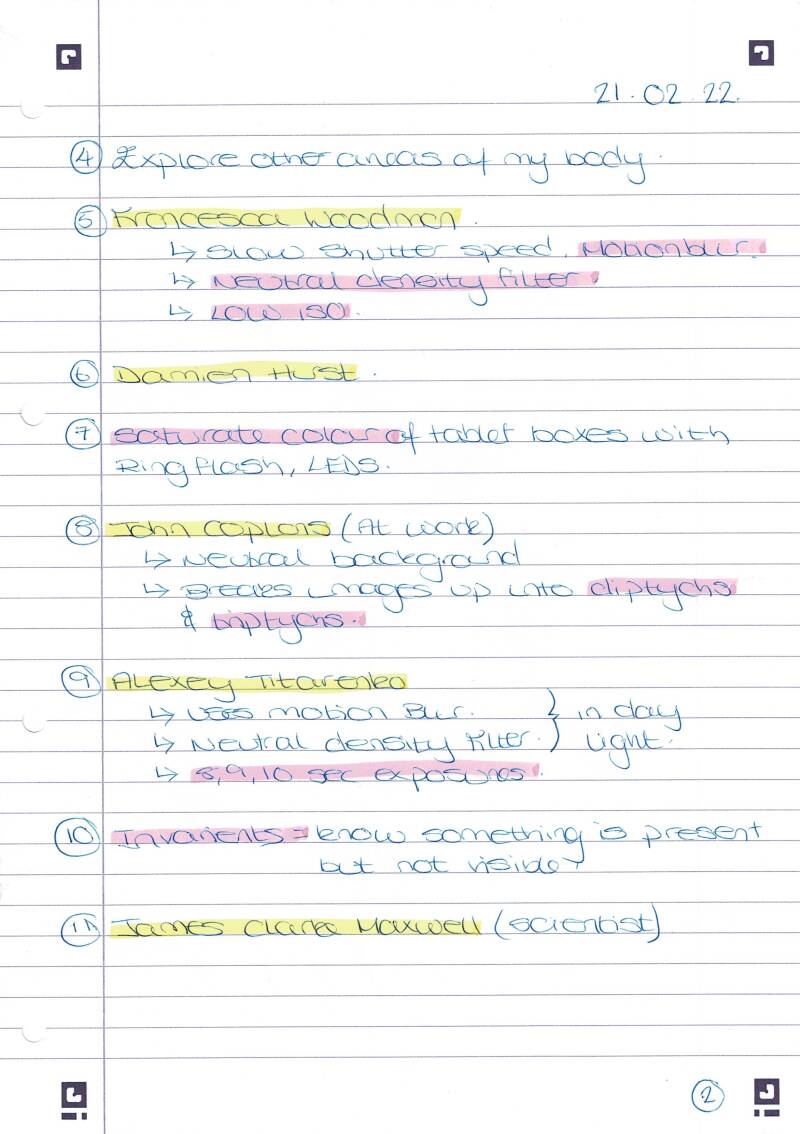 21.02.22.
④ Explore other areas of my body.
⑤ Francesca Woodman.
↳ Slow shutter speed. Motion blur.
↳ Neutral density filter
↳ Low ISO.
⑥ Damien Hirst.
⑦ Saturate colour of tablet boxes with
Ring flash, LEDS.
⑧ John Coplans (At work)
↳ Neutral background
↳ Breaks images up into diptychs
& triptychs.
⑨ Alexey Titarenko
↳ Uses motion Blur. } in day
↳ Neutral density filter. } light.
↳ 8, 9, 10 sec exposures.
⑩ Invarients = know something is present
but not visible
⑪ James Clark Maxwell (scientist)
②